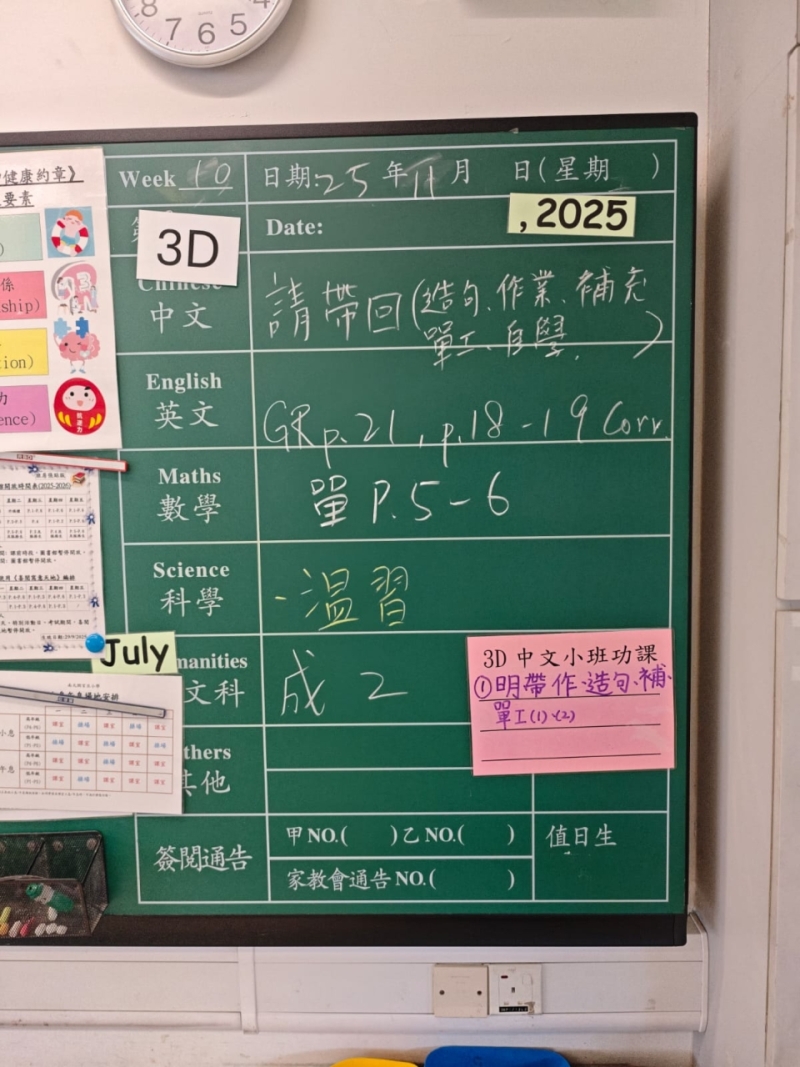 8 7 6 5 4
健康約章》
要素
係
ship)
tion)
力
ence)
Week 10 日期:25年11月 日(星期 )
3D
Date: , 2025
Chinese
中文
請帶回(造句、作業、補充
單工、自學. )
English
英文
GR p.21, p.18-19 Corr.
Maths
數學
單 P.5-6
Science
科學
-温習
July
manities
文科
成 2
3D 中文小班功課
①明帶作、造句、補.
單工(1)、(2)
thers
其他
簽閱通告
甲NO.( )乙NO.( )
家教會通告NO.( )
值日生